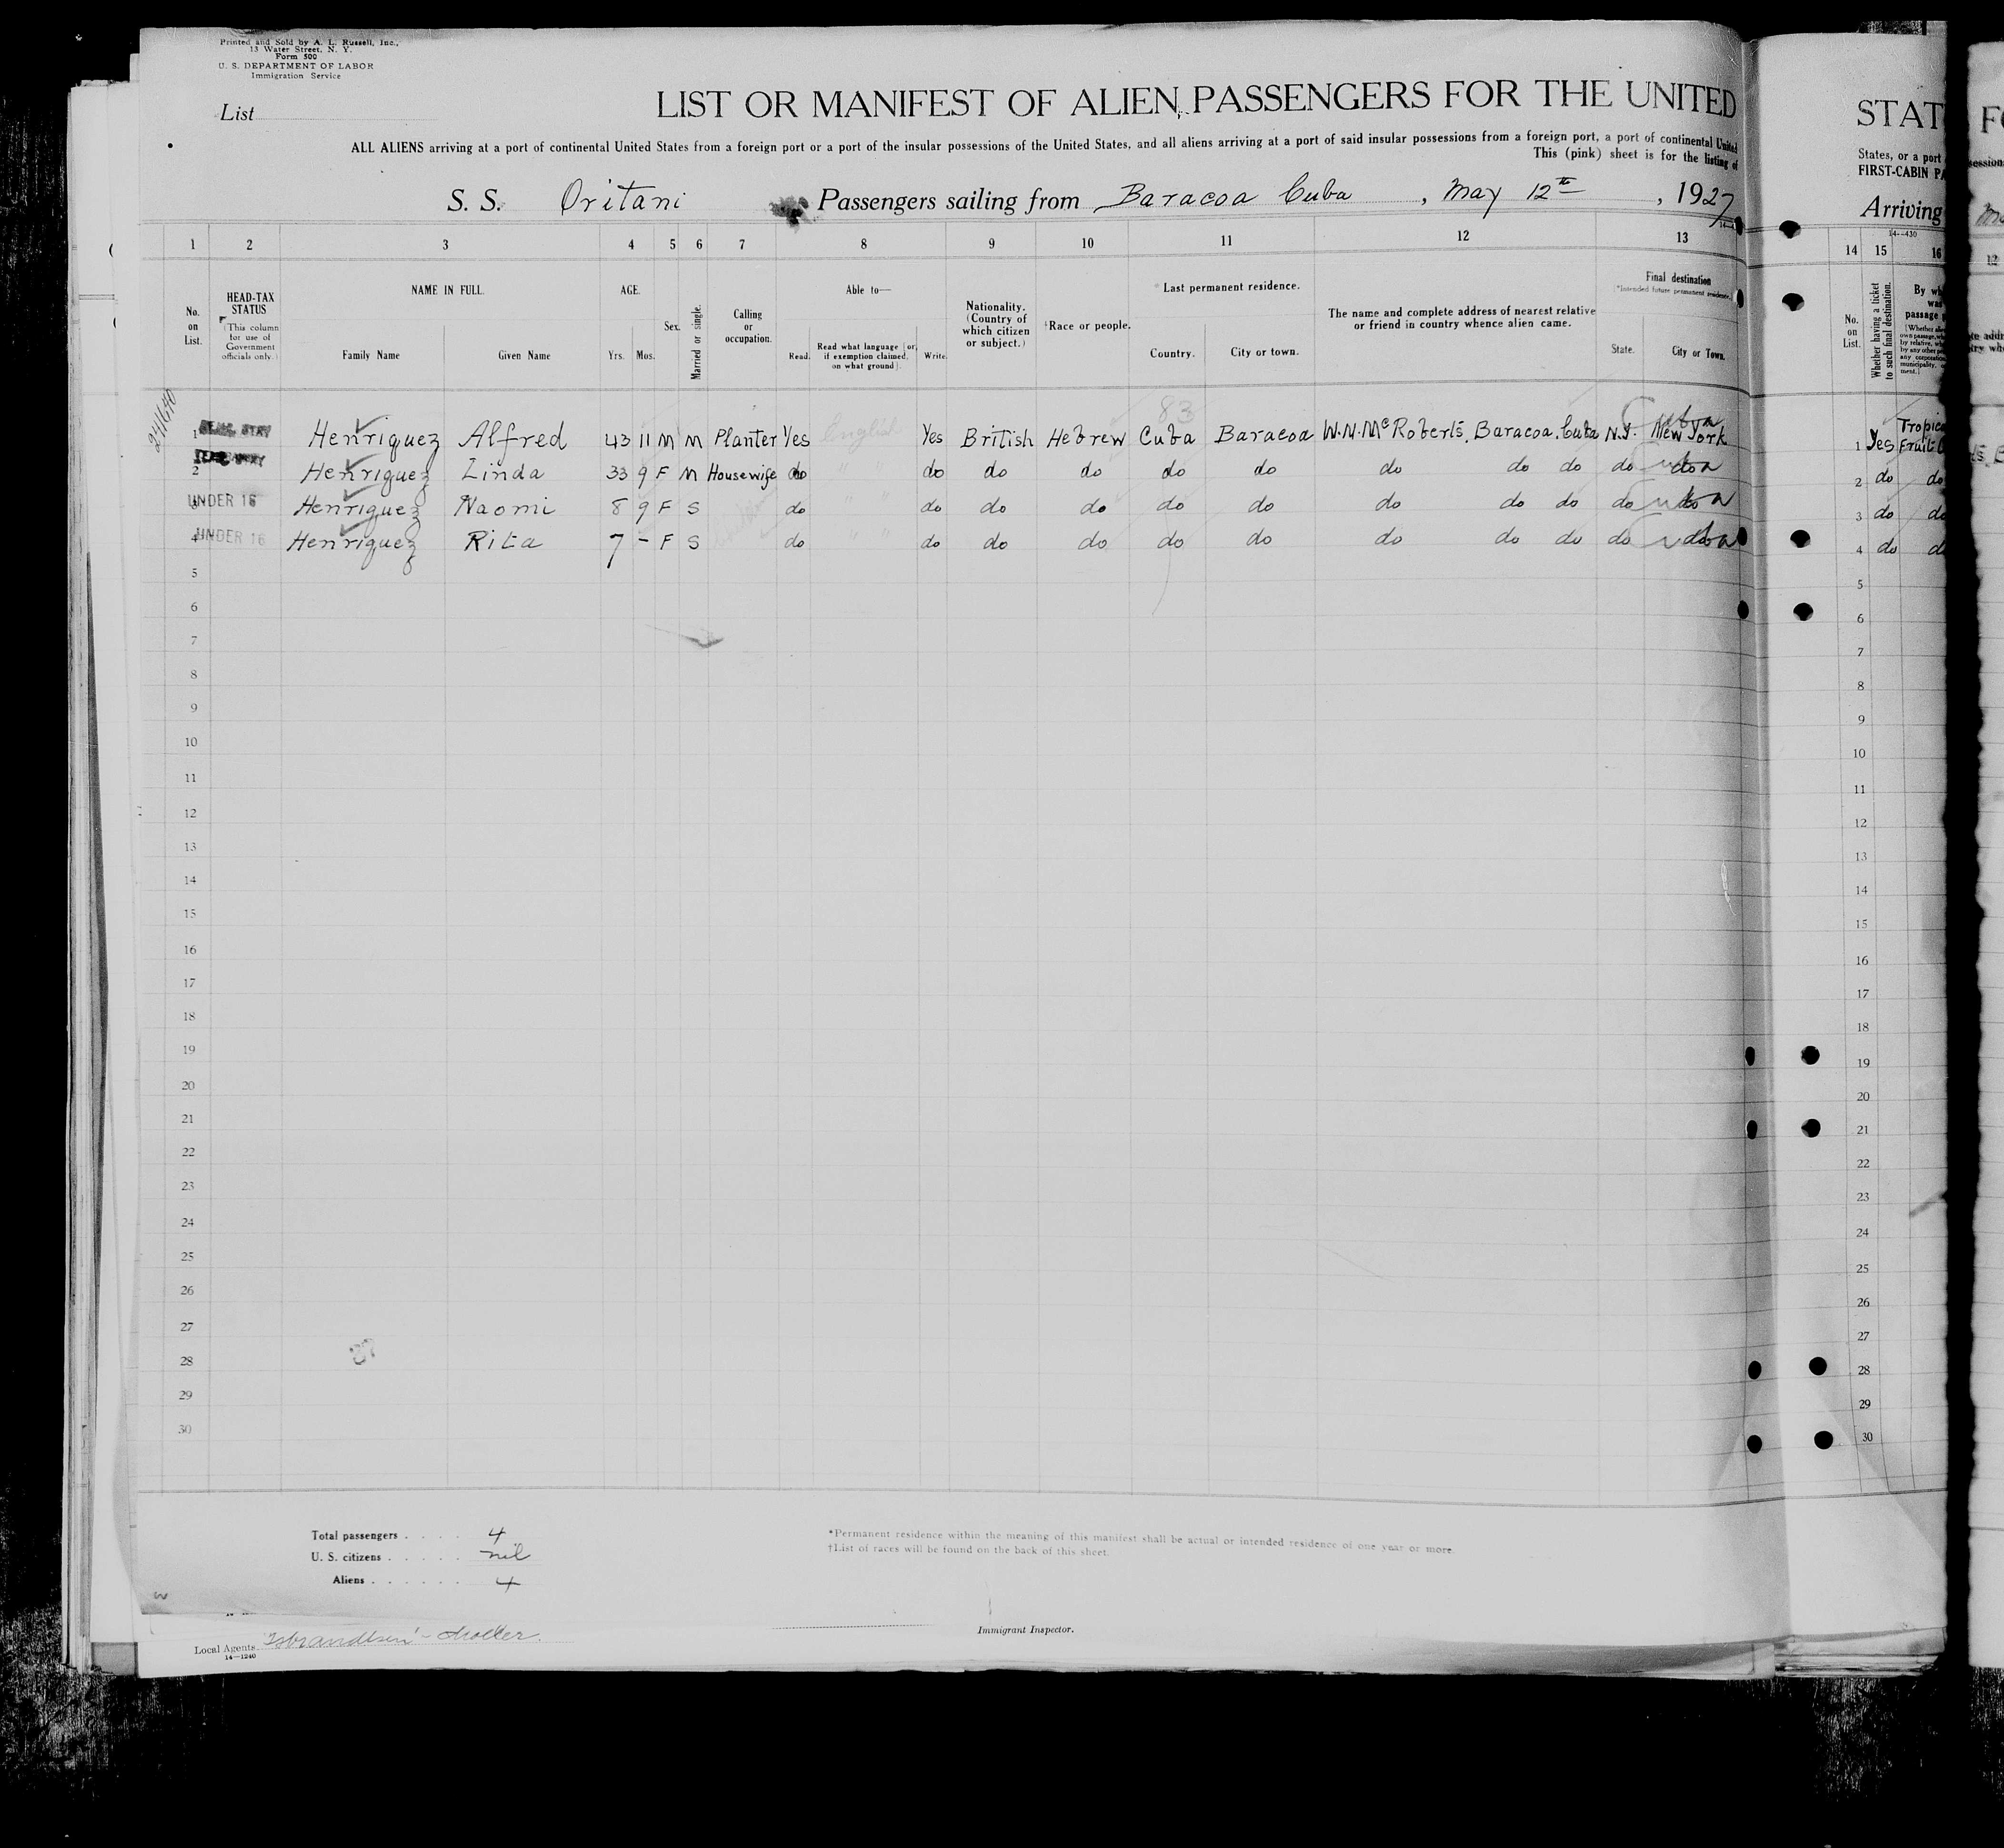 Printed and Sold by A. L. Russell, Inc.,
13 Water Street, N. Y.
Form 500
U. S. DEPARTMENT OF LABOR
Immigration Service
List
LIST OR MANIFEST OF ALIEN PASSENGERS FOR THE UNITED
ALL ALIENS arriving at a port of continental United States from a foreign port or a port of the insular possessions of the United States, and all aliens arriving at a port of said insular possessions from a foreign port, a port of continental United
This (pink) sheet is for the listing of
S. S. Oritani Passengers sailing from Baracoa Cuba, May 12th, 1927
1 2 3 4 5 6 7 8 9 10 11 12 13
No. on List.
HEAD-TAX STATUS
(This column for use of Government officials only.)
NAME IN FULL.
Family Name Given Name
AGE.
Yrs. Mos.
Sex.
Married or single.
Calling or occupation.
Able to—
Read. Read what language [or, if exemption claimed, on what ground]. Write.
Nationality. (Country of which citizen or subject.)
†Race or people.
*Last permanent residence.
Country. City or town.
The name and complete address of nearest relative or friend in country whence alien came.
Final destination
*(Intended future permanent residence.)
State. City or Town.
241640
83
Cuba
1 Henriquez Alfred 43 11 M M Planter Yes English Yes British Hebrew Cuba Baracoa W.N. McRoberts, Baracoa, Cuba N.Y. New York
2 Henriquez Linda 33 9 F M Housewife do " " do do do do do do do do do do
UNDER 16
3 Henriquez Naomi 8 9 F S do " " do do do do do do do do do do
UNDER 16
4 Henriquez Rita 7 - F S do " " do do do do do do do do do do
5
6
7
8
9
10
11
12
13
14
15
16
17
18
19
20
21
22
23
24
25
26
27
28
29
30
Total passengers . . . . 4
U. S. citizens . . . . . nil
Aliens . . . . . . 4
*Permanent residence within the meaning of this manifest shall be actual or intended residence of one year or more.
†List of races will be found on the back of this sheet.
Local Agents Isbrandtsen - Moller.
14—1240
Immigrant Inspector.
STAT
States, or a port
FIRST-CABIN PA
Arriving
14—430
14 15 16
No. on List.
Whether having a ticket to such final destination.
By wh
was
passage
1 Yes Tropic
Fruit C
2 do do
3 do do
4 do do
5
6
7
8
9
10
11
12
13
14
15
16
17
18
19
20
21
22
23
24
25
26
27
28
29
30